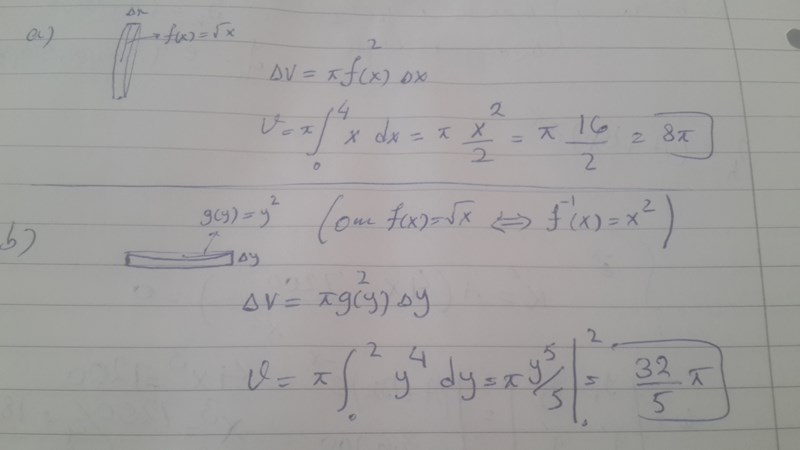 a)
Δx
f(x) = √x
ΔV = π f²(x) Δx
V = π ∫₀⁴ x dx = π x²/2 = π 16/2 = 8π
b)
g(y) = y² (om f(x) = √x ⇔ f⁻¹(x) = x²)
Δy
ΔV = π g²(y) Δy
V = π ∫₀² y⁴ dy = π y⁵/5 |₀² = 32/5 π